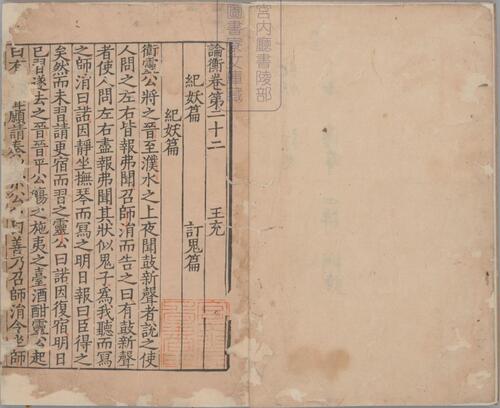 宮内廳書陵部
圖書寮文庫藏
論衡卷第二十二 王充
紀妖篇 訂鬼篇
紀妖篇
衛靈公將之晉至濮水之上夜聞鼓新聲者說之使
人問之左右皆報弗聞召師涓而告之曰有鼓新聲
者使人問左右盡報弗聞其狀似鬼子爲我聽而寫
之師涓曰諾因靜坐撫琴而寫之明日報曰臣得之
矣然而未習請更宿而習之靈公曰諾因復宿明日
已習遂去之晉晉平公觴之施夷之臺酒酣靈公起
曰有 願請奏 公曰善乃召師涓令坐師